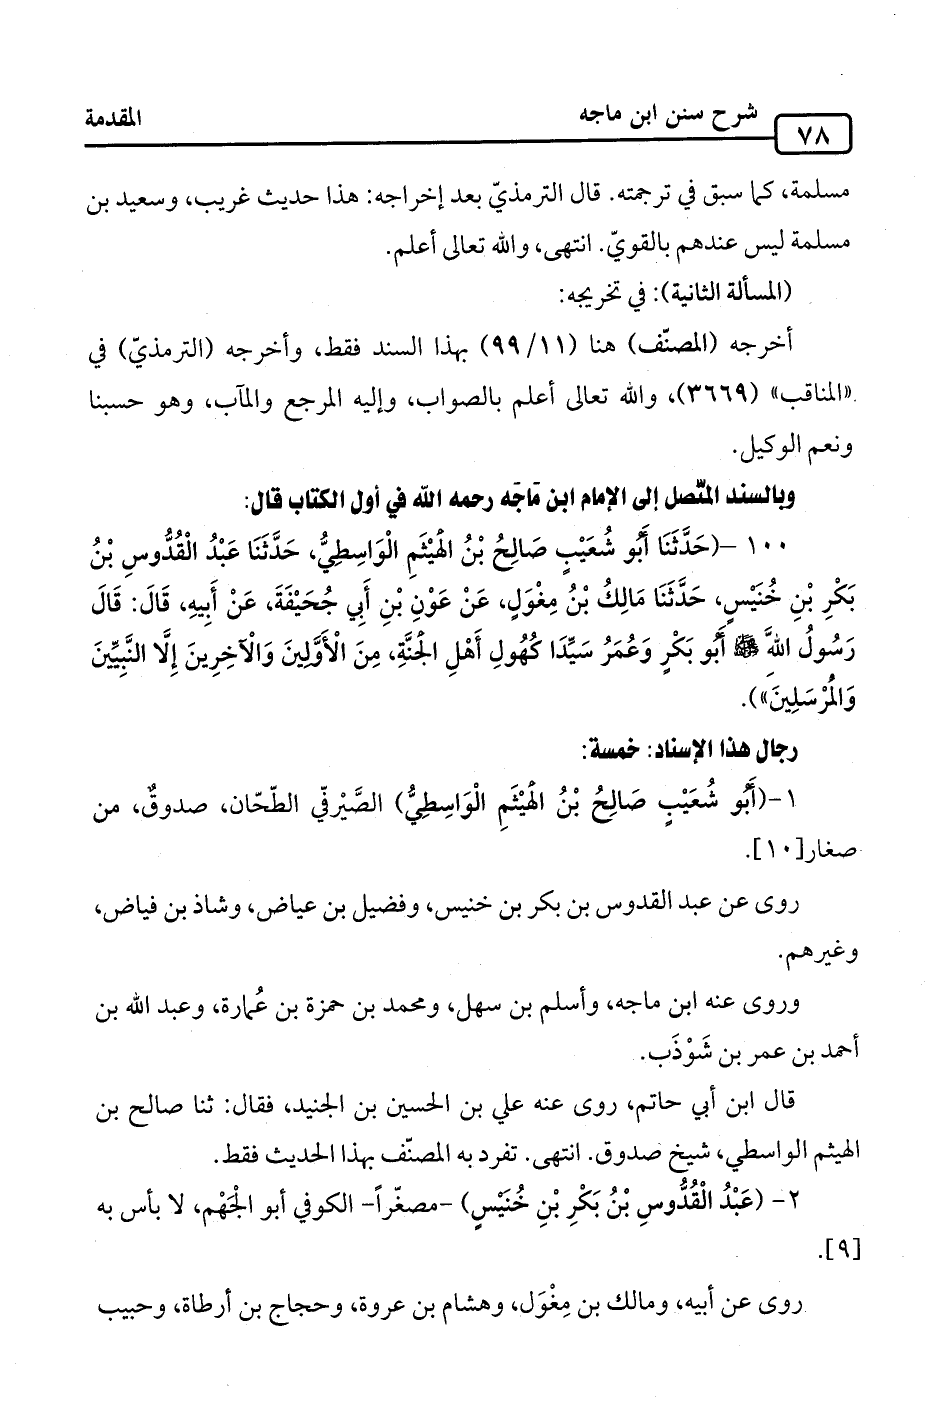 ٧٨
شرح سنن ابن ماجه
المقدمة
مسلمة، كما سبق في ترجمته. قال الترمذيّ بعد إخراجه: هذا حديث غريب، وسعيد بن
مسلمة ليس عندهم بالقويّ. انتهى، والله تعالى أعلم.
(المسألة الثانية): في تخريجه:
أخرجه (المصنّف) هنا (٩٩/١١) بهذا السند فقط، وأخرجه (الترمذيّ) في
«المناقب» (٣٦٦٩)، والله تعالى أعلم بالصواب، وإليه المرجع والمآب، وهو حسبنا
ونعم الوكيل.
وبالسند المتّصل إلى الإمام ابن مَاجَه رحمه الله في أول الكتاب قال:
١٠٠ -(حَدَّثَنَا أَبُو شُعَيْبٍ صَالِحُ بْنُ الْهَيْثَمِ الْوَاسِطِيُّ، حَدَّثَنَا عَبْدُ الْقُدُّوسِ بْنُ
بَكْرِ بْنِ خُنَيْسٍ، حَدَّثَنَا مَالِكُ بْنُ مِغْوَلٍ، عَنْ عَوْنِ بْنِ أَبِي جُحَيْفَةَ، عَنْ أَبِيهِ، قَالَ: قَالَ
رَسُولُ اللهِ ﷺ أَبُو بَكْرٍ وَعُمَرُ سَيِّدَا كُهُولِ أَهْلِ الْجَنَّةِ، مِنَ الْأَوَّلِينَ وَالْآخِرِينَ إِلَّا النَّبِيِّينَ
وَالْمُرْسَلِينَ»).
رجال هذا الإسناد: خمسة:
١-(أَبُو شُعَيْبٍ صَالِحُ بْنُ الْهَيْثَمِ الْوَاسِطِيُّ) الصَّيْرفيّ الطّحّان، صدوقٌ، من
صغار[١٠].
روى عن عبد القدوس بن بكر بن خنيس، وفضيل بن عياض، وشاذ بن فياض،
وغيرهم.
وروى عنه ابن ماجه، وأسلم بن سهل، ومحمد بن حمزة بن عُمارة، وعبد الله بن
أحمد بن عمر بن شَوْذَب.
قال ابن أبي حاتم، روى عنه علي بن الحسين بن الجنيد، فقال: ثنا صالح بن
الهيثم الواسطي، شيخ صدوق. انتهى. تفرد به المصنّف بهذا الحديث فقط.
٢- (عَبْدُ الْقُدُّوسِ بْنُ بَكْرِ بْنِ خُنَيْسٍ) -مصغّراً- الكوفي أبو الجَهْم، لا بأس به
[٩].
روى عن أبيه، ومالك بن مِغْوَل، وهشام بن عروة، وحجاج بن أرطاة، وحبيب